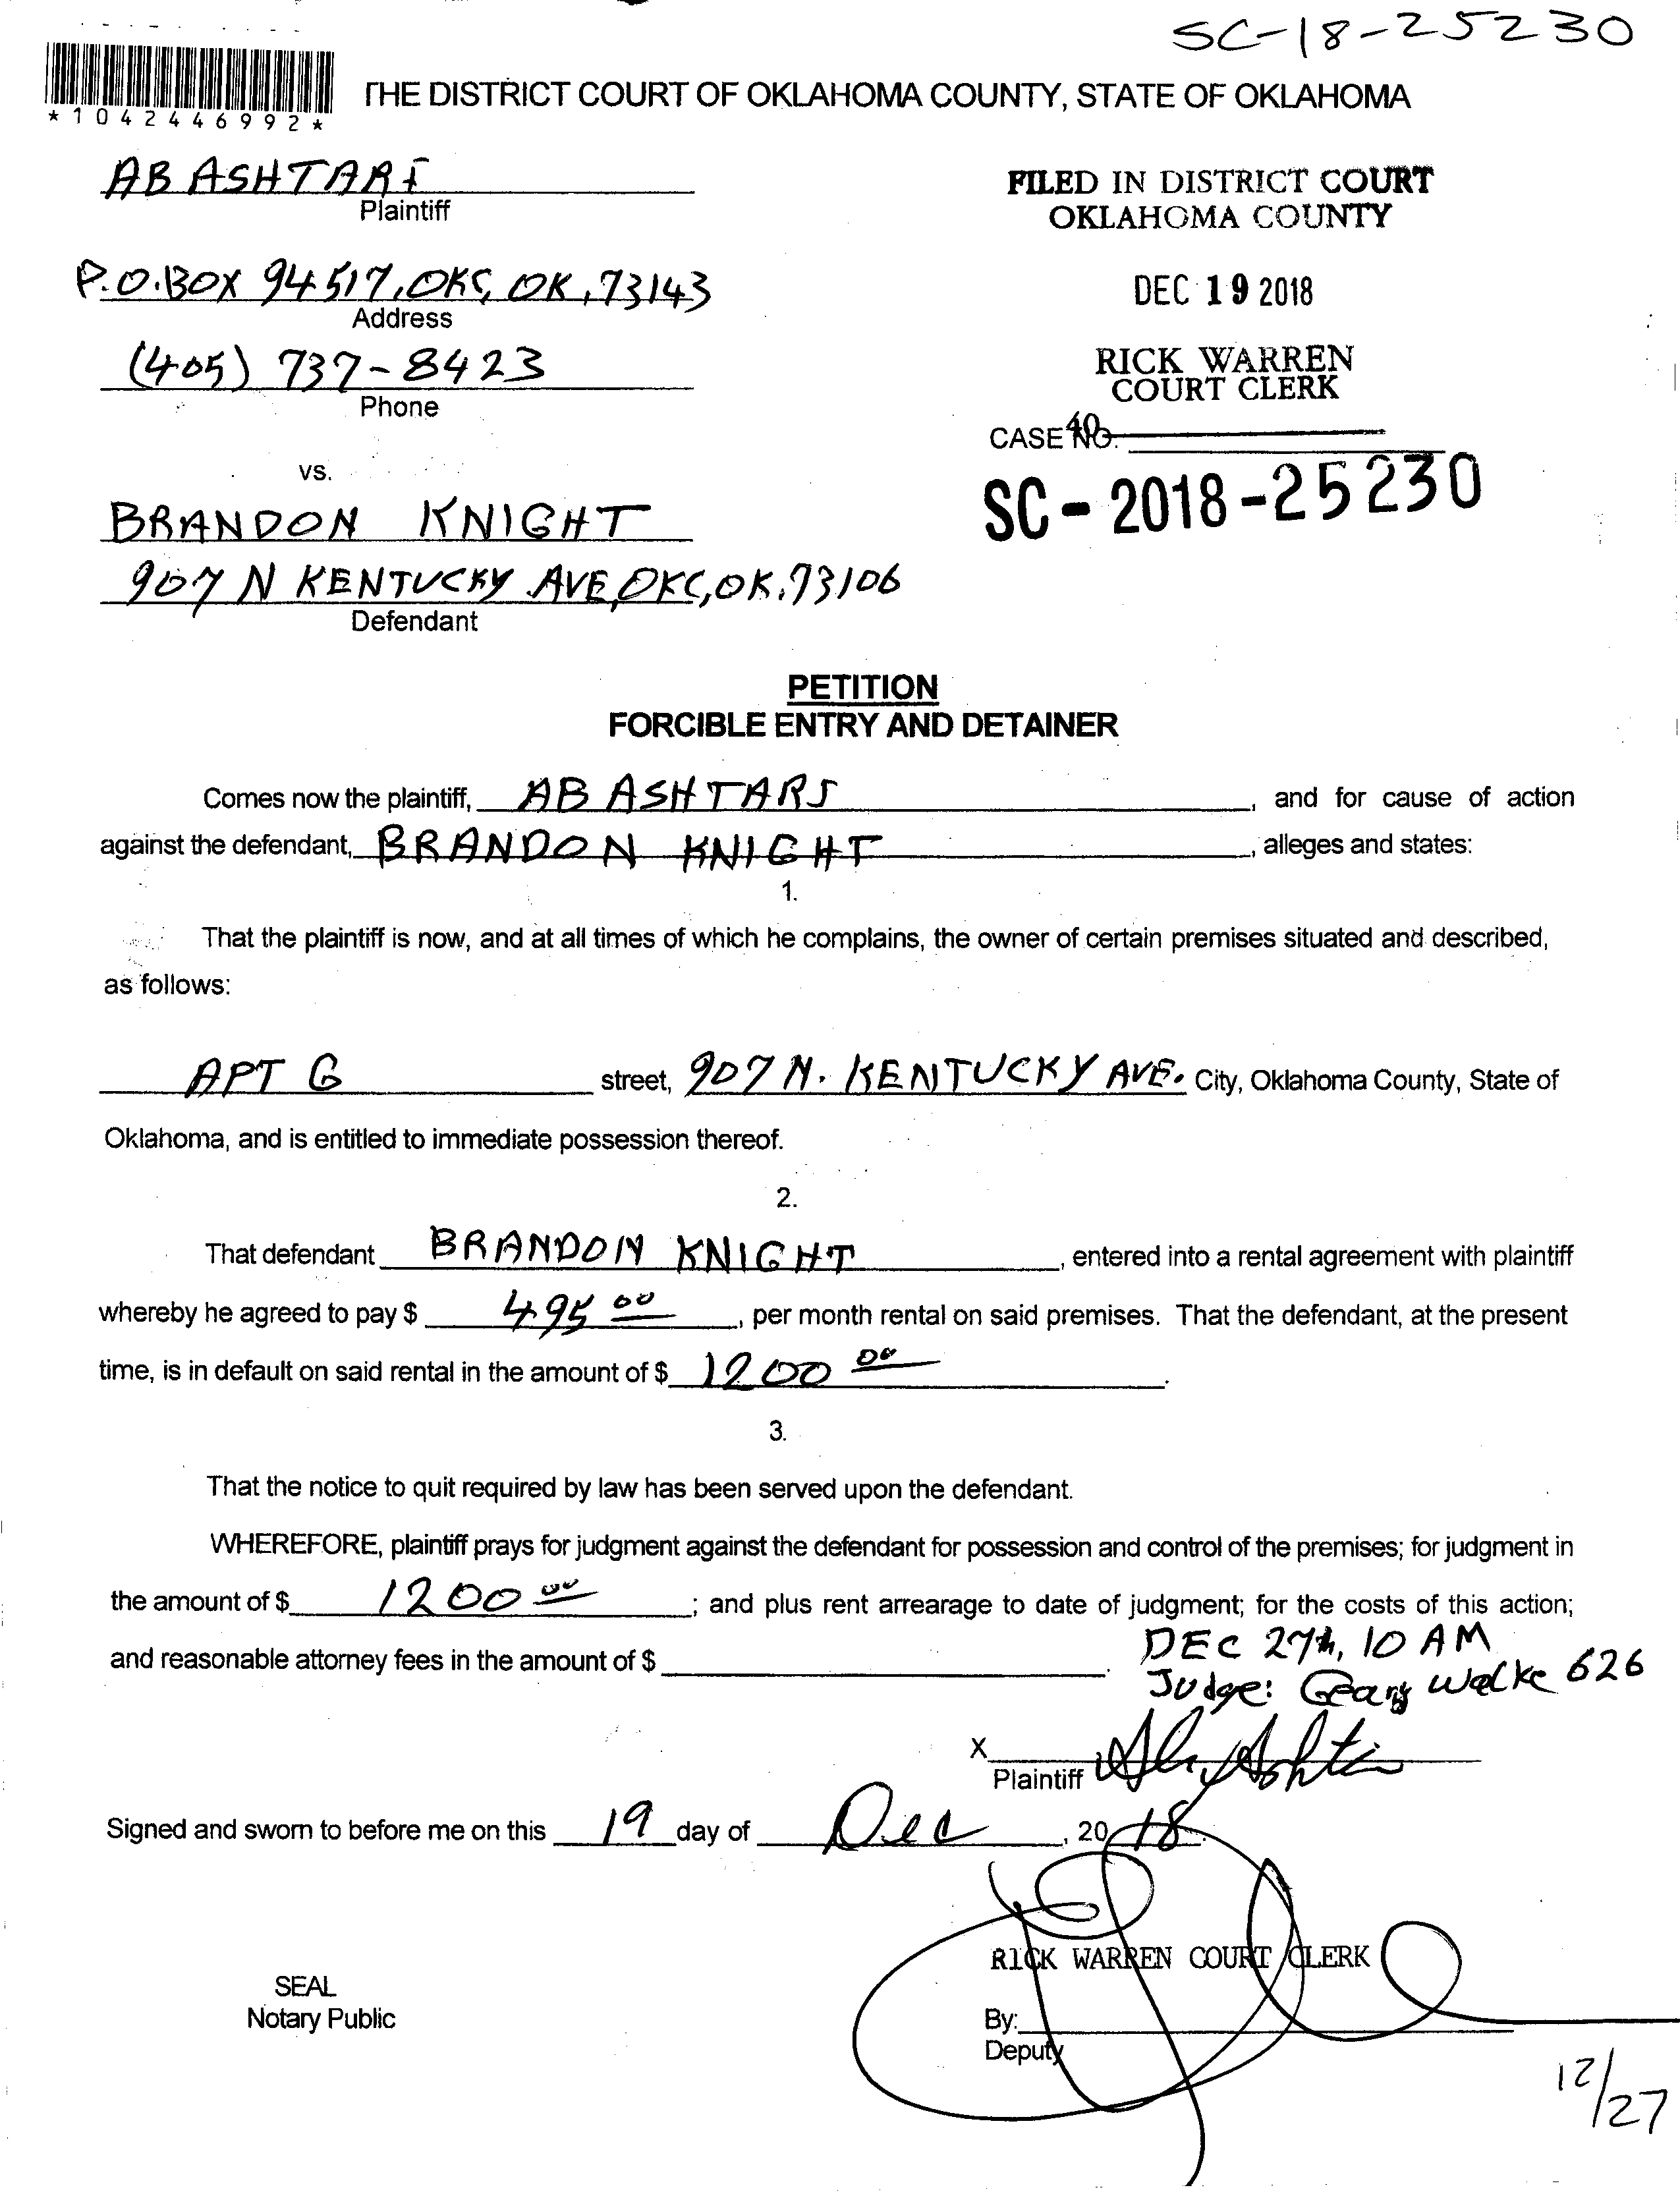 SC-18-25230
*1042446992*
THE DISTRICT COURT OF OKLAHOMA COUNTY, STATE OF OKLAHOMA
AB ASHTARI
Plaintiff
FILED IN DISTRICT COURT
OKLAHOMA COUNTY
P.O.BOX 94517, OKC, OK, 73143
Address
DEC 19 2018
(405) 737-8423
Phone
RICK WARREN
COURT CLERK
40
CASE NO.
vs.
SC-2018-25230
BRANDON KNIGHT
907 N KENTUCKY AVE, OKC, OK, 73106
Defendant
PETITION
FORCIBLE ENTRY AND DETAINER
Comes now the plaintiff, AB ASHTARI, and for cause of action
against the defendant, BRANDON KNIGHT, alleges and states:
1.
That the plaintiff is now, and at all times of which he complains, the owner of certain premises situated and described,
as follows:
APT G street, 907 N. KENTUCKY AVE. City, Oklahoma County, State of
Oklahoma, and is entitled to immediate possession thereof.
2.
That defendant BRANDON KNIGHT, entered into a rental agreement with plaintiff
whereby he agreed to pay $ 495 00, per month rental on said premises. That the defendant, at the present
time, is in default on said rental in the amount of $ 1200 00.
3.
That the notice to quit required by law has been served upon the defendant.
WHEREFORE, plaintiff prays for judgment against the defendant for possession and control of the premises; for judgment in
the amount of $ 1200 00; and plus rent arrearage to date of judgment; for the costs of this action;
and reasonable attorney fees in the amount of $ .
DEC 27th, 10 AM
Judge: Geary Walke 626
X
Plaintiff
Signed and sworn to before me on this 19 day of Dec, 2018.
RICK WARREN COURT CLERK
SEAL
Notary Public
By:
Deputy
12/27